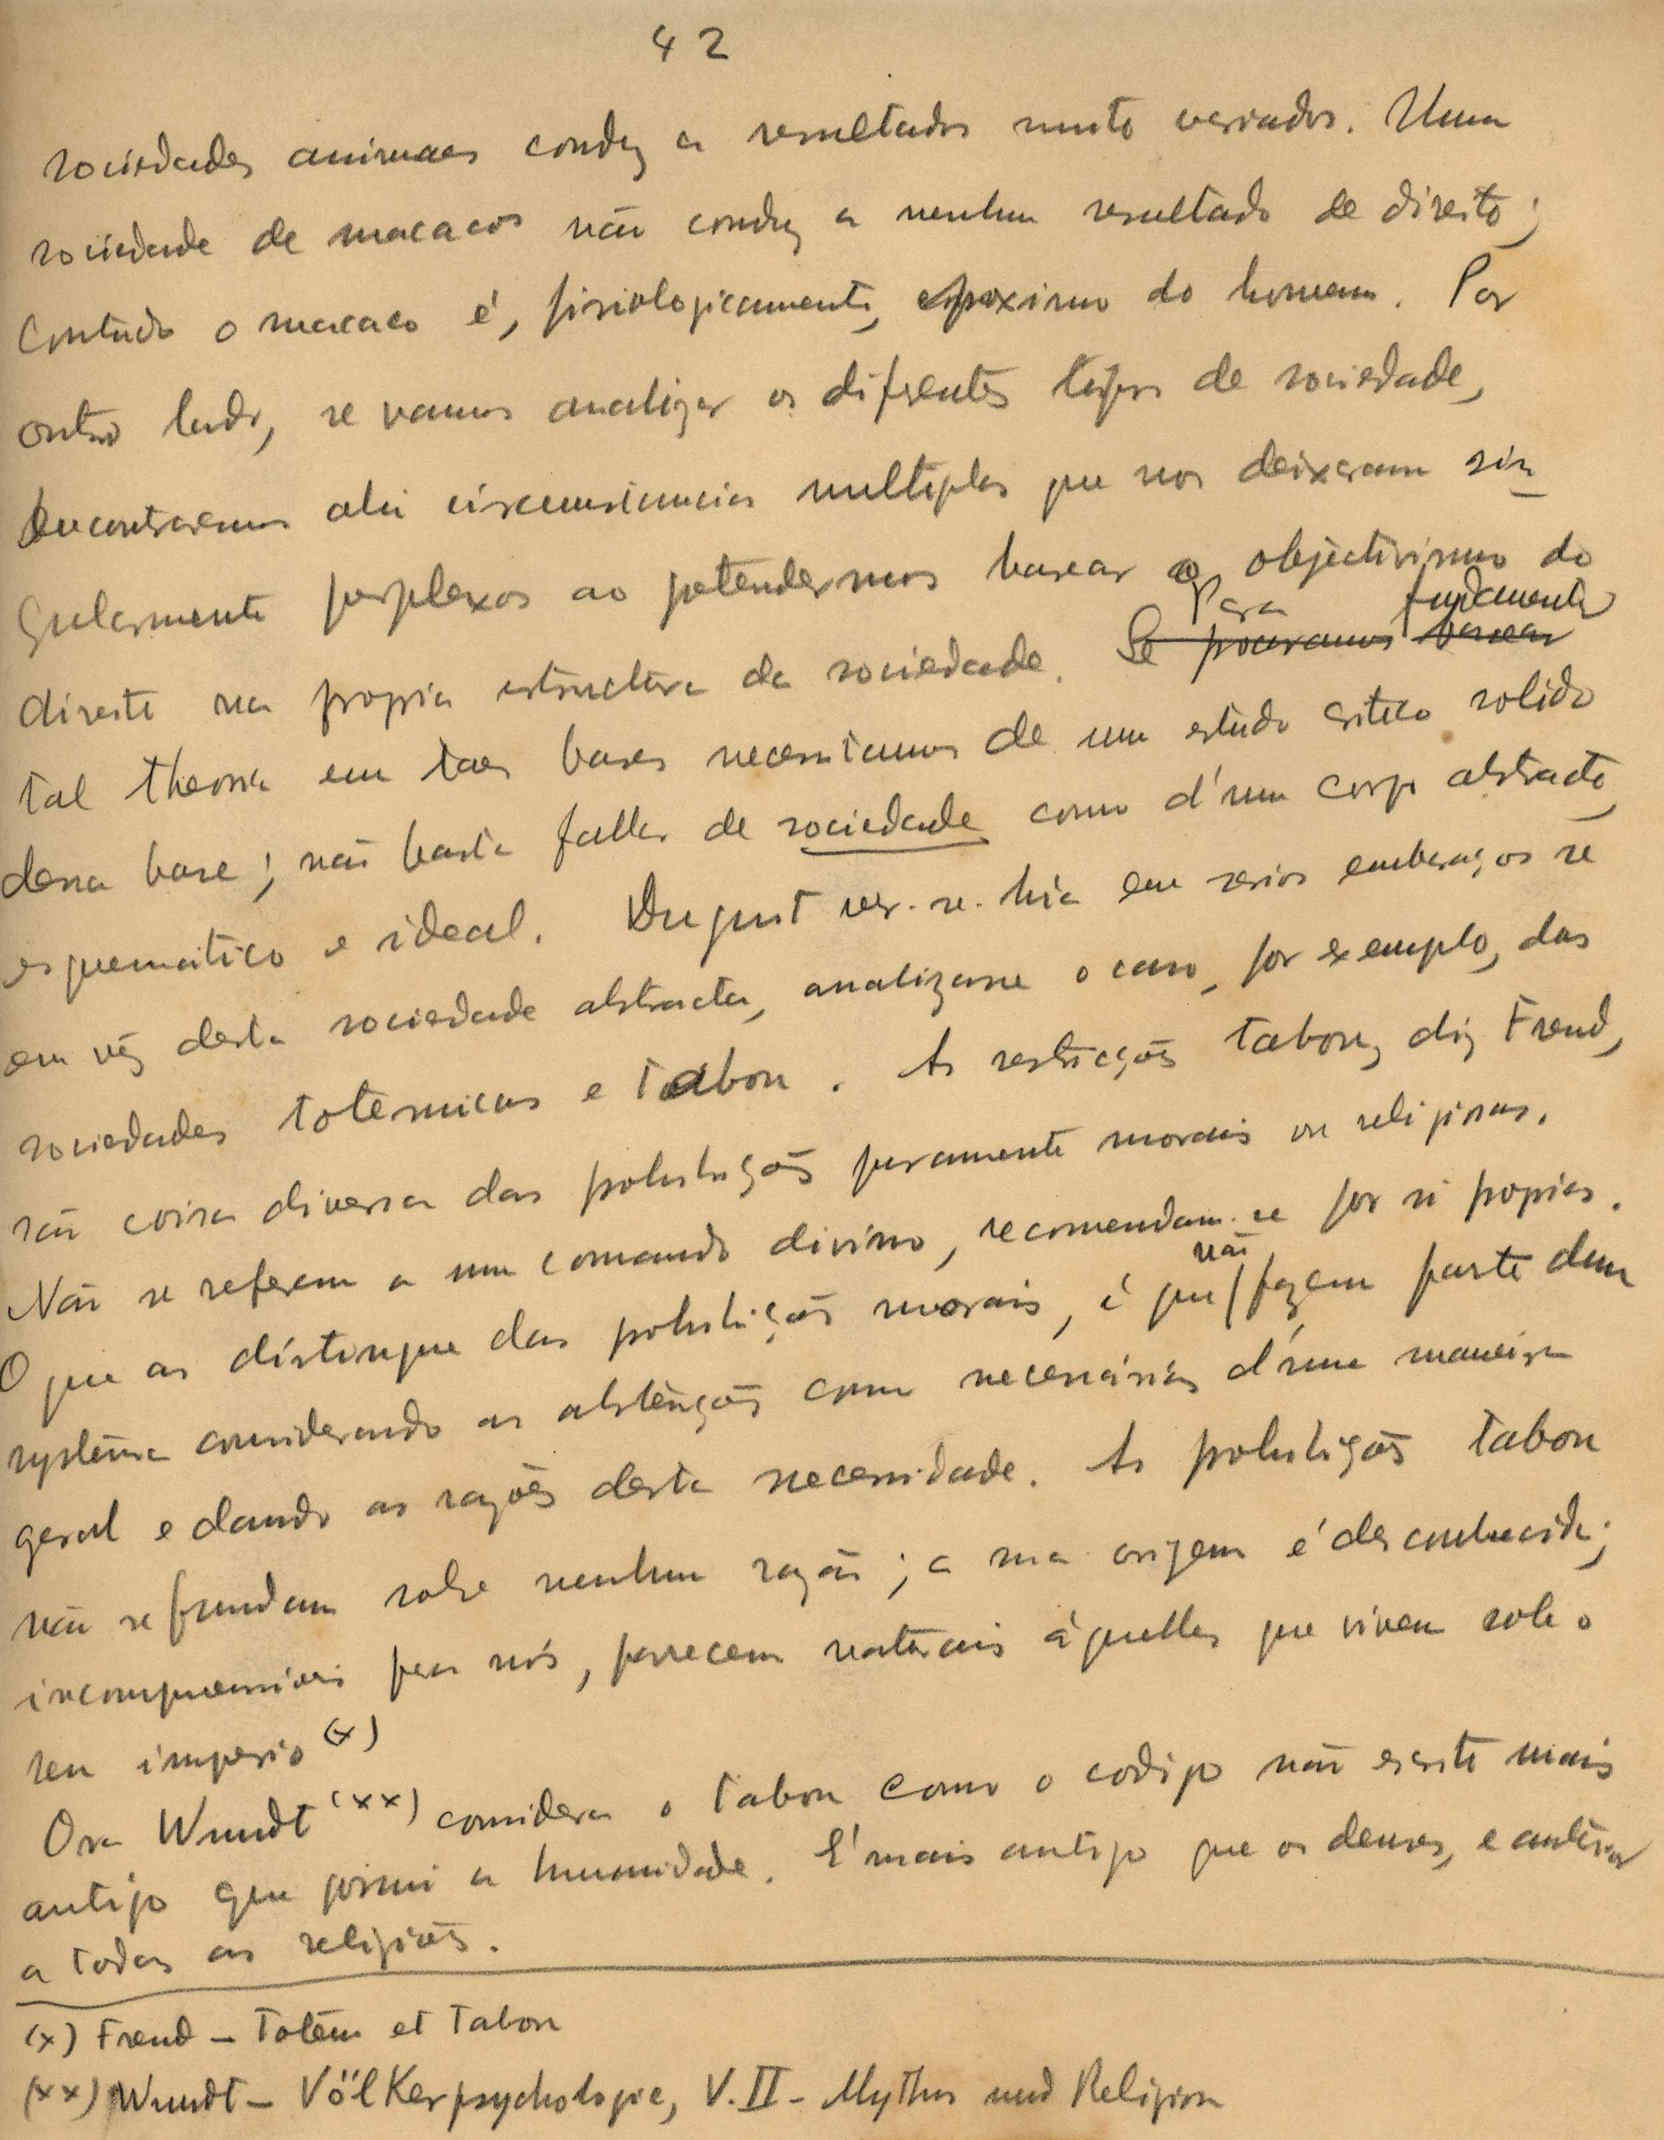 42
sociedades animaes conduz a resultados muito variados. Uma
sociedade de macacos não conduz a nenhum resultado de direito;
Contudo o macaco é, fisiologicamente, o proximo do homem. Por
outro lado, se vamos analizar os diferentes typos de sociedade,
Encontraremos ahi circumstancias multiplas que nos deixaram sin
gularmente perplexos ao pretendermos basear o objectivismo do
direito na propria estructura da sociedade. Se procuramos basear
Para fundamentar
tal theoria em taes bases necessitamos de um estudo critico solido
dessa base; não basta fallar de sociedade como d'um corpo abstracto,
esquematico e ideal. Duguit ver-se-hia em serios embaraços se
em vêz desta sociedade abstracta, analizasse o caso, por exemplo, das
sociedades totemicas e tabou. As restricções tabou, diz Freud,
são coisa diversa das prohibições puramente morais ou religiosas.
Não se referem a um comando divino, recomendam-se por si proprias.
O que as distingue das prohibições morais, é que não fazem parte dum
systema considerando as abstenções como necessárias d'uma maneira
geral e dando as razões desta necessidade. As prohibições tabou
não se fundam sobre nenhuma razão; a sua origem é desconhecida;
incompreensiveis para nós, parecem naturais àquelles que vivem sob o
seu imperio (x)
Ora Wundt (xx) considera o tabou como o codigo não escrito mais
antigo que possui a humanidade. É mais antigo que os deuses, e anterior
a todas as religiões.
(x) Freud – Totem et Tabou
(xx) Wundt – Völkerpsychologie, V. II – Mythus und Religion